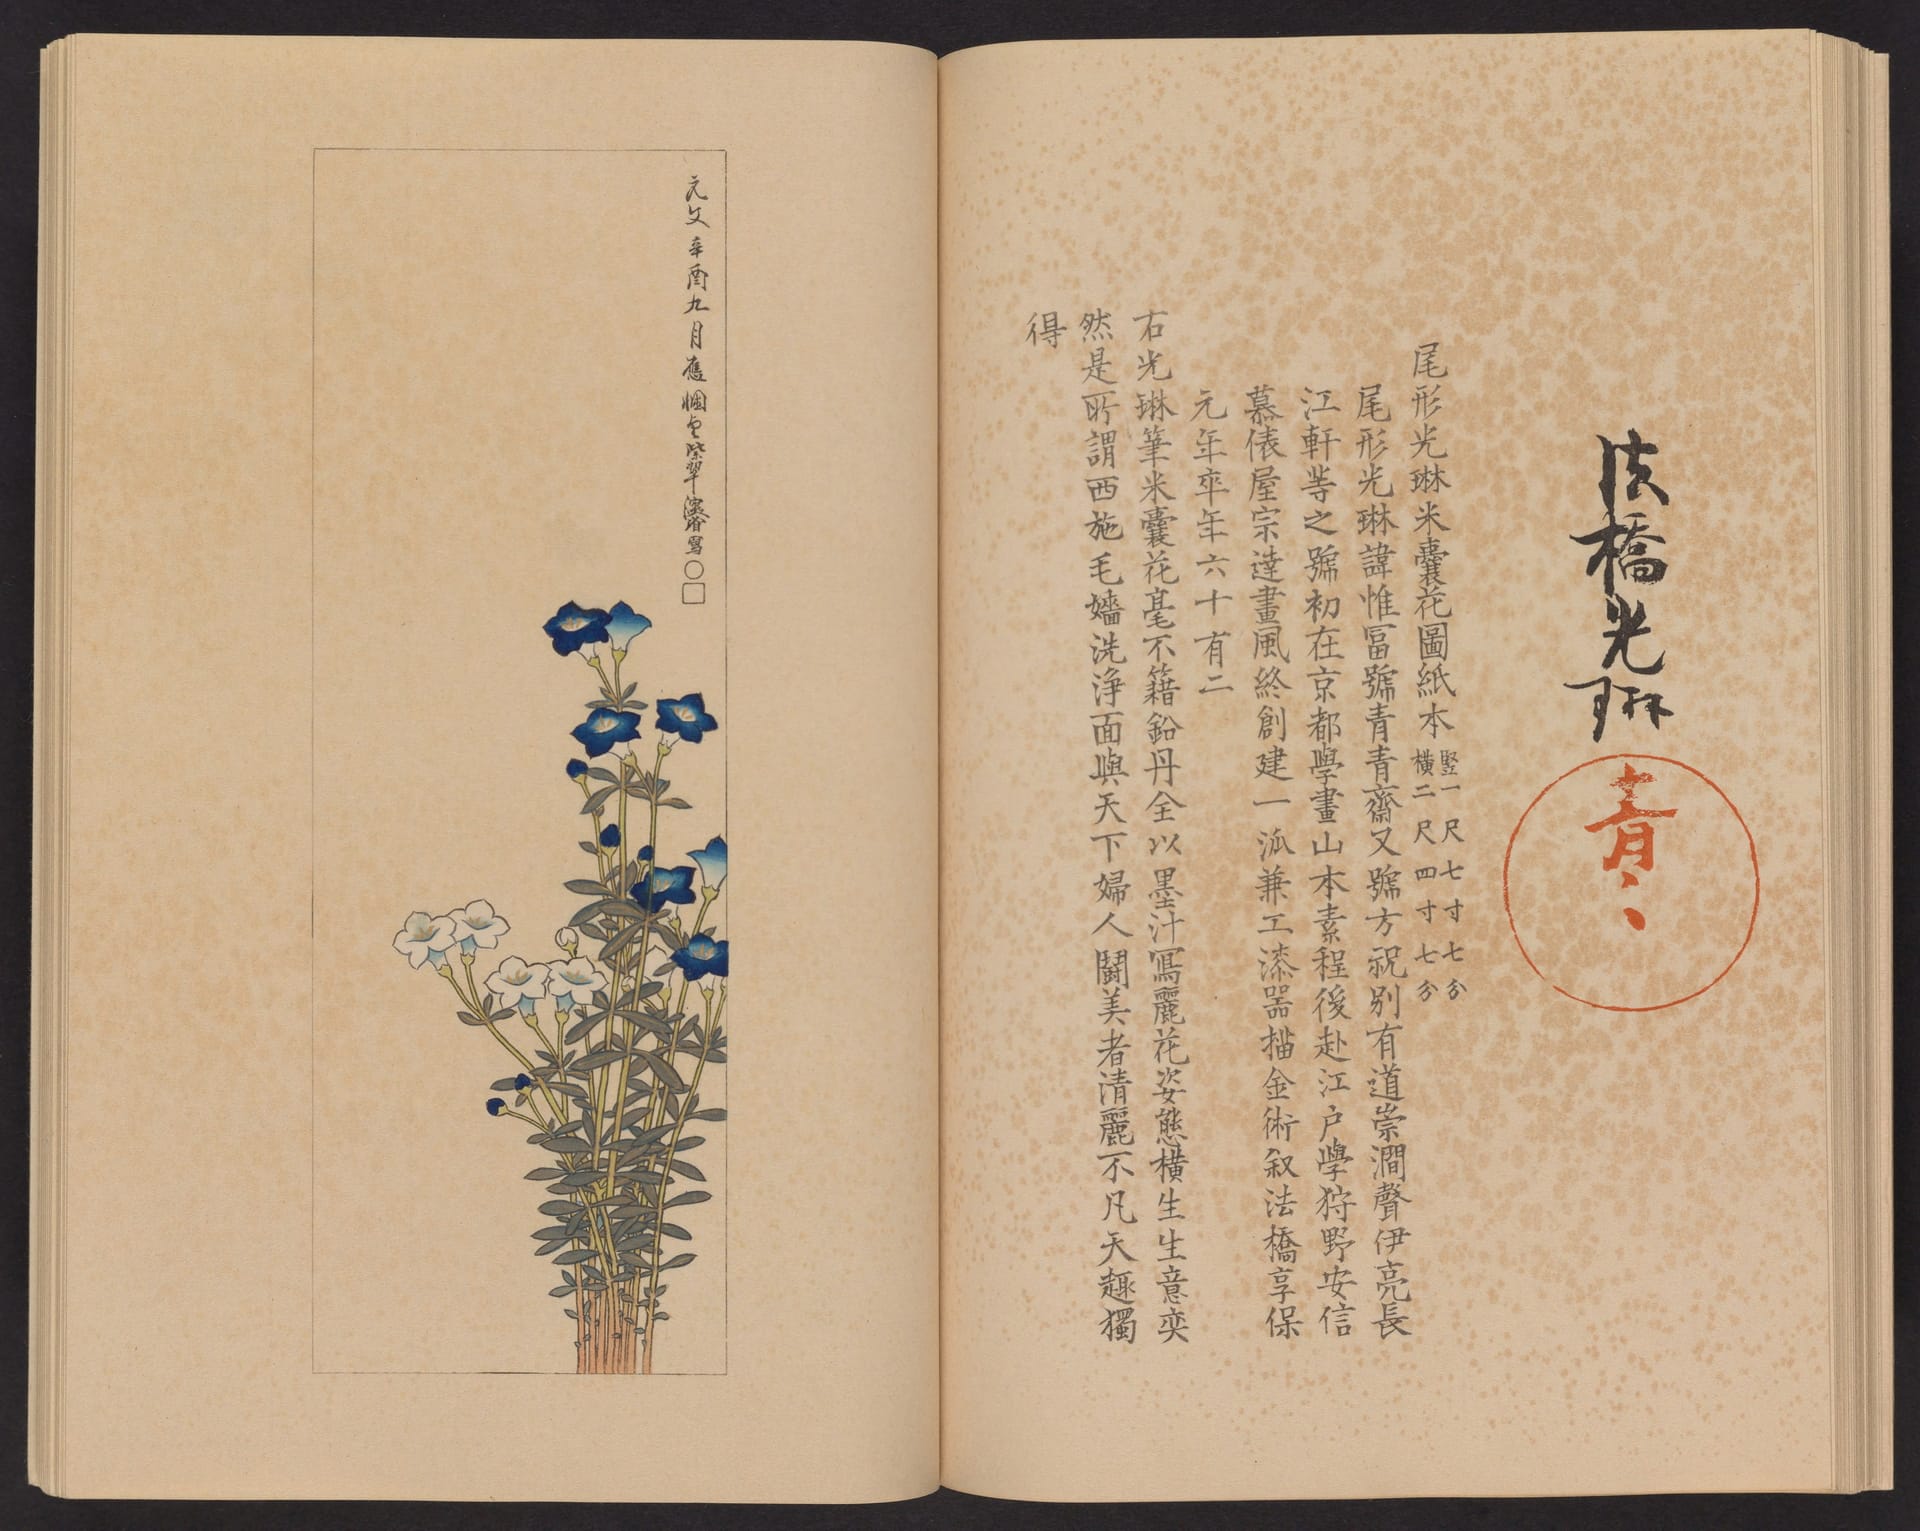 法橋光琳
青々
尾形光琳米囊花圖紙本
竪一尺七寸七分
橫二尺四寸七分
尾形光琳諱惟冨號青青齋又號方祝別有道崇澗聲伊亮長
江軒䓁之號初在京都學畫山本素程後赴江戶學狩野安信
慕俵屋宗達畫風終創建一派兼工漆器描金術叙法橋享保
元年卒年六十有二
右光琳筆米囊花毫不籍鉛丹全以墨汁冩麗花姿態橫生生意奕
然是所謂西施毛嬙洗淨面與天下婦人鬪美者清麗不凡天趣獨
得
元文辛酉九月應
寫○□